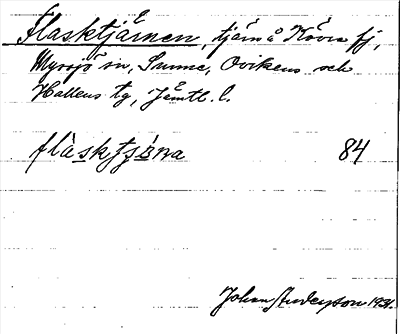 Flasktjärnen, tjärn å Kövra fj,
Myssjö sn, Sunne, Ovikens och
Hallens tg, Jämtl. l.
flàskfsɛ̀na 84
Johan Anderson 1931.